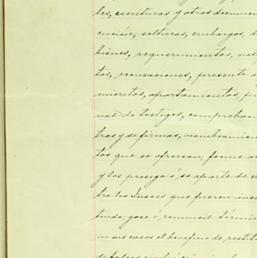 les, escrituras y otros documen
cución, solturas, embargos, d
bienes, requerimientos, no
tas, recusaciones, presente
mientos, apartamientos, p
nes de testigos, comproba
tras y de firmas, nombramien
tos que se ofrezcan, forme a
y los prosiga ó se aparte de
tra los Jueces que fueren
tenda, goce ó renuncie términ
en sus casos el beneficio de resti